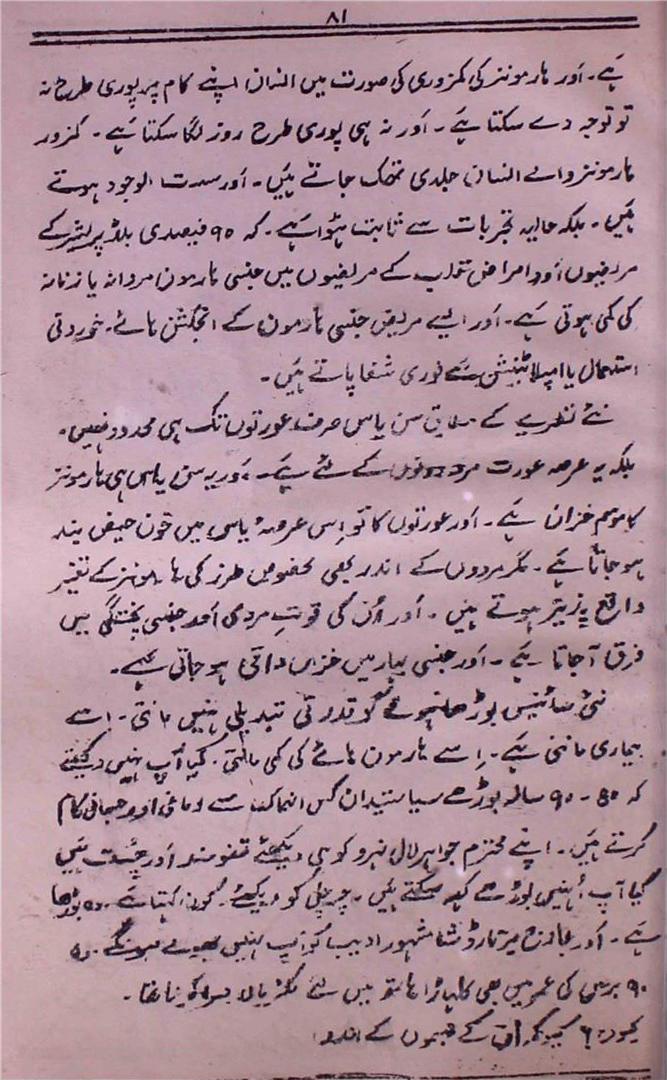 ۸۱
ہے۔ اور ہارمونز کی کمزوری کی صورت میں انسان اپنے کام پر پوری طرح نہ
تو توجہ دے سکتا ہے۔ اور نہ ہی پوری طرح روز لگا سکتا ہے۔ کمزور
ہارمونز والے انسان جلدی تھک جاتے ہیں۔ اور سست الوجود ہوتے
ہیں۔ بلکہ حالیہ تجربات سے ثابت ہوا ہے۔ کہ ۹۰ فیصدی بلڈ پریشر کے
مریضوں اور امراض قلب کے مریضوں میں جنسی ہارمون مردانہ یا زنانہ
کی کمی ہوتی ہے۔ اور ایسے مریض جنسی ہارمون کے انجکشن ہائے۔ خوردنی
استعمال یا امپلانٹیشن سے فوری شفا پاتے ہیں۔
نئے نظریے کے مطابق سن یاس صرف عورتوں تک ہی محدود نہیں۔
بلکہ یہ عرصہ عورت مرد دونوں کے لئے ہے۔ اور یہ سن یاس ہی ہارمونز
کا موسم خزاں ہے۔ اور عورتوں کا تو اِسی عرصۂ یاسی میں خون حیض بند
ہو جاتا ہے۔ مگر مردوں کے اندر بھی مخصوص طرز کی ہارمونز کے تغیر
واقع پذیر ہوتے ہیں۔ اور اُن کی قوتِ مردی اور جنسی پختگی میں
فرق آ جاتا ہے۔ اور جنسی بہار میں خزاں داتی ہو جاتی ہے۔
نئی سائنس بوڑھا ہونے کو قدرتی تبدیلی نہیں مانتی۔ اسے
بیماری مانتی ہے۔ اِسے ہارمون ہائے کی کمی مانتی۔ کیا آپ نہیں دیکھتے
کہ ۸۰ - ۹۰ سالہ بوڑھے سیاستدان کس انہماک سے دماغی اور جسمانی کام
کرتے ہیں۔ اپنے محترم جواہر لال نہرو کو ہی دیکھئے تنومند اور چست ہیں
کیا آپ اُنہیں بوڑھے کہہ سکتے ہیں۔ چرچل کو دیکھئے۔ کون کہتا ہے۔ وہ بوڑھا
ہے۔ اور جارج برنارڈ شا مشہور ادیب کو آپ نہیں بھولے ہونگے۔ وہ
۹۰ برس کی عمر میں بھی کلہاڑا ہاتھ میں لئے لکڑیاں
کیوں؟ کیونکہ اُن کے جسموں کے اندر